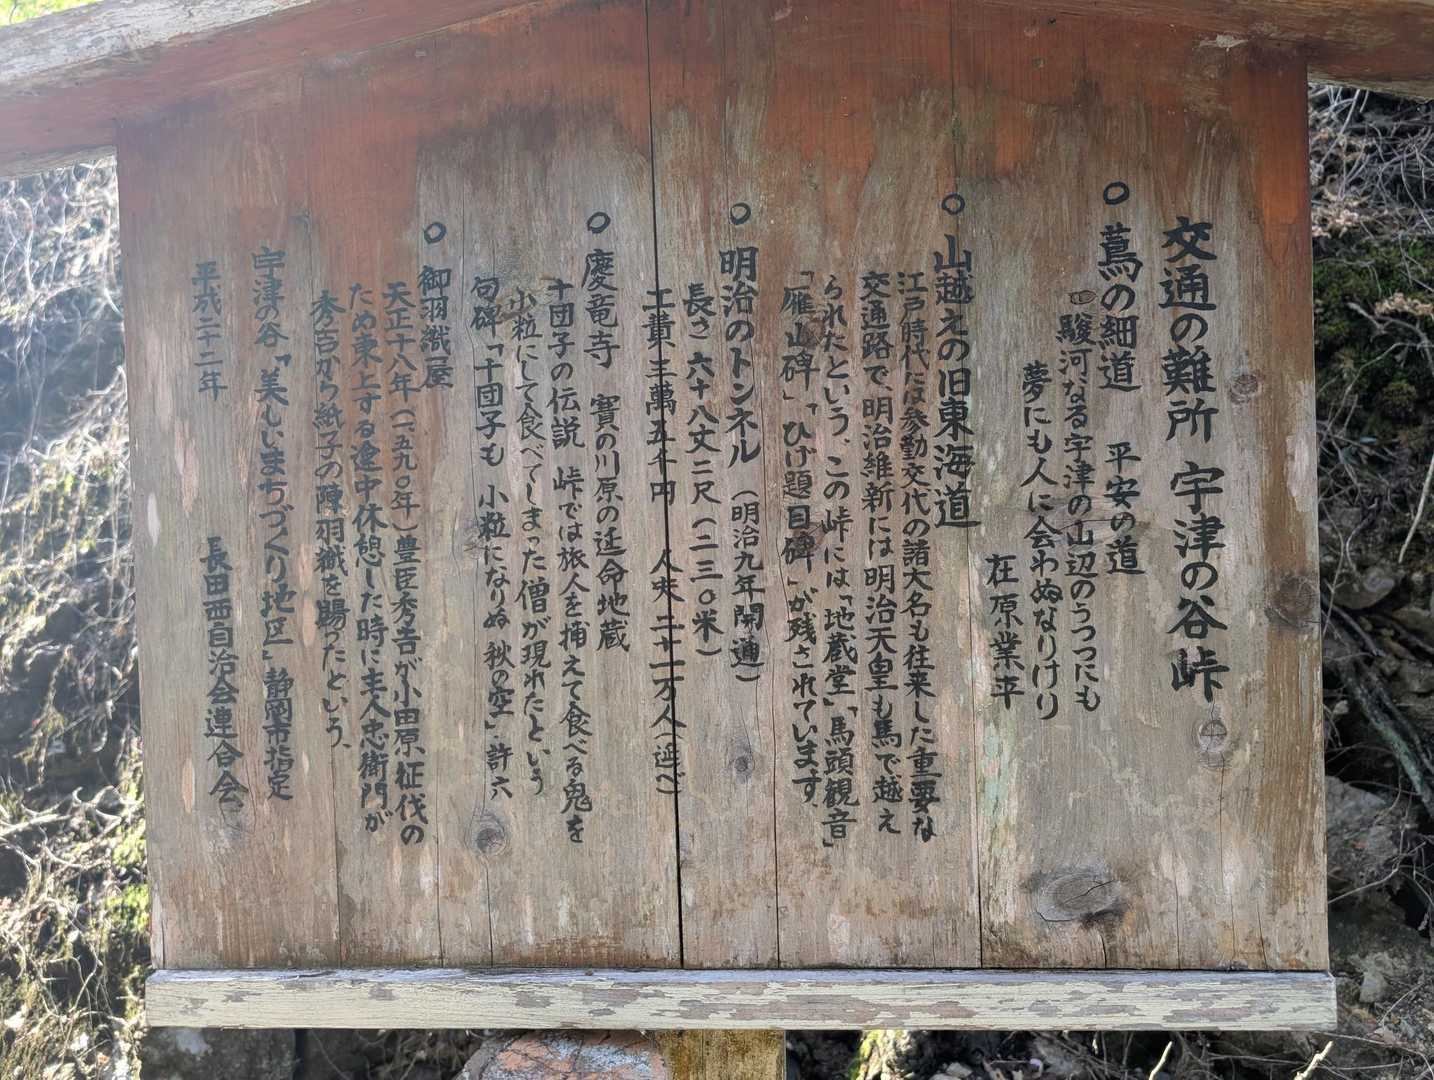 交通の難所 宇津の谷峠
○ 蔦の細道 平安の道
駿河なる宇津の山辺のうつつにも
夢にも人に会わぬなりけり
在原業平
○ 山越えの旧東海道
江戸時代には参勤交代の諸大名も往来した重要な
交通路で、明治維新には明治天皇も馬で越え
られたという、この峠には「地蔵堂」「馬頭観音」
「雁山碑」「ひげ題目碑」が残されています
○ 明治のトンネル (明治九年開通)
長さ 六十八丈二尺(二三〇米)
工費 三萬五千円 人夫 二十一万人(延べ)
○ 慶竜寺 寳の川原の延命地蔵
十団子の伝説 峠では旅人を捕えて食べる鬼を
小粒にして食べてしまった僧が現れたという
句碑「十団子も 小粒になりぬ 秋の空」許六
○ 御羽織屋
天正十八年(一、五九〇年)豊臣秀吉が小田原征伐の
ため東上する途中休憩した時に主人忠衛門が
秀吉から紙子の陣羽織を賜ったという、
宇津の谷「美しいまちづくり地区」静岡市指定
平成二十二年 長田西自治会連合会